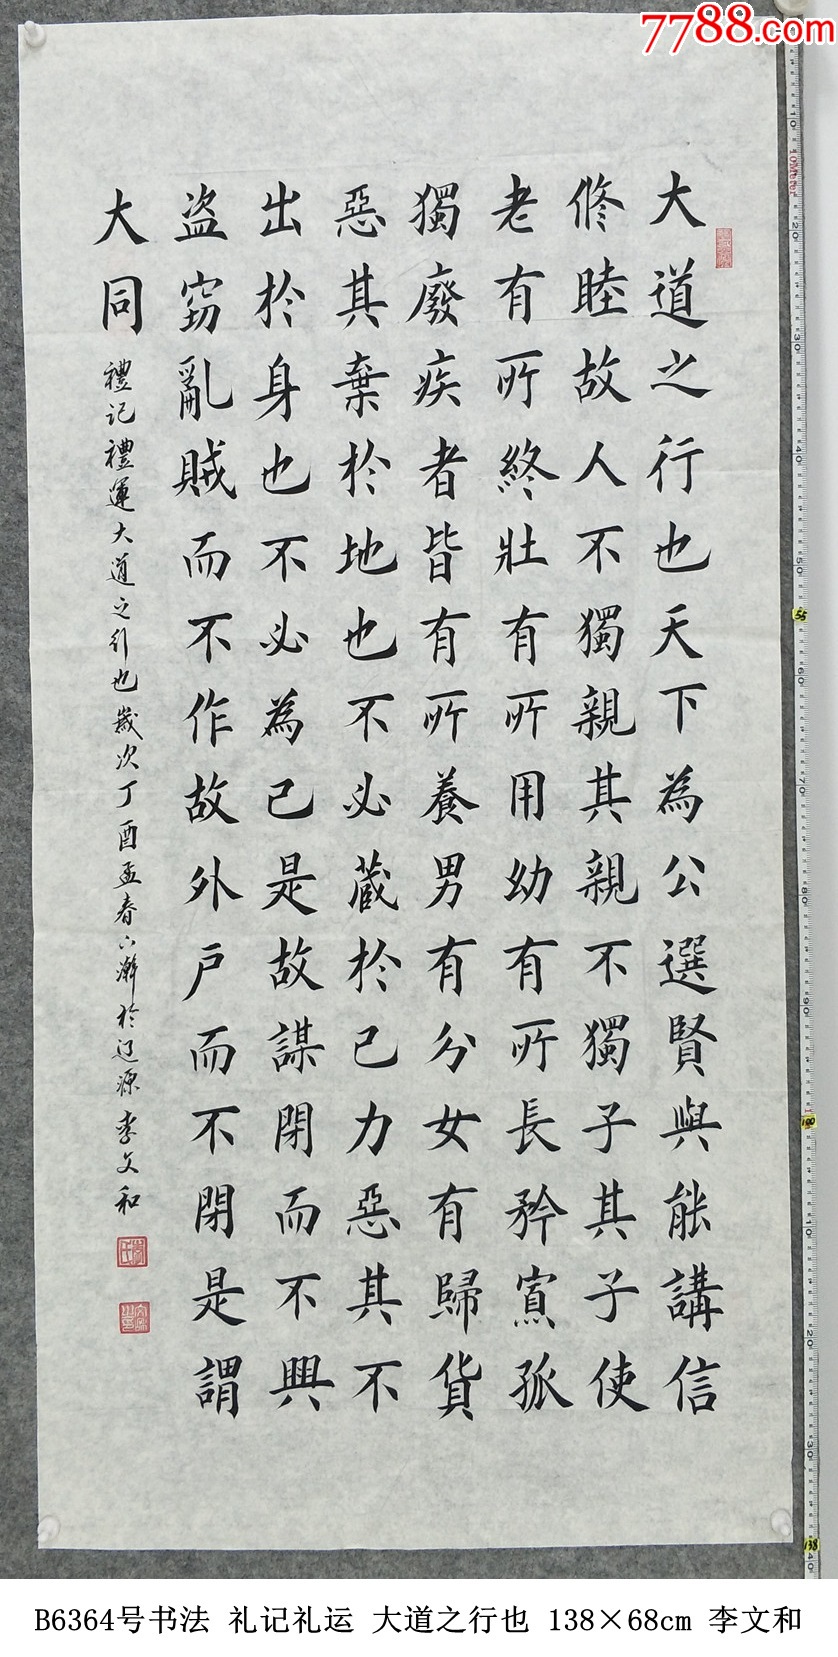 7788.com
大道之行也天下為公選賢與能講信
修睦故人不獨親其親不獨子其子使
老有所終壯有所用幼有所長矜寡孤
獨廢疾者皆有所養男有分女有歸貨
惡其棄於地也不必藏於己力惡其不
出於身也不必為己是故謀閉而不興
盗竊亂賊而不作故外戶而不閉是謂
大同
禮記禮運大道之行也歲次丁酉孟春下澣於辽源李文和
55
100
138
B6364号书法 礼记礼运 大道之行也 138×68cm 李文和